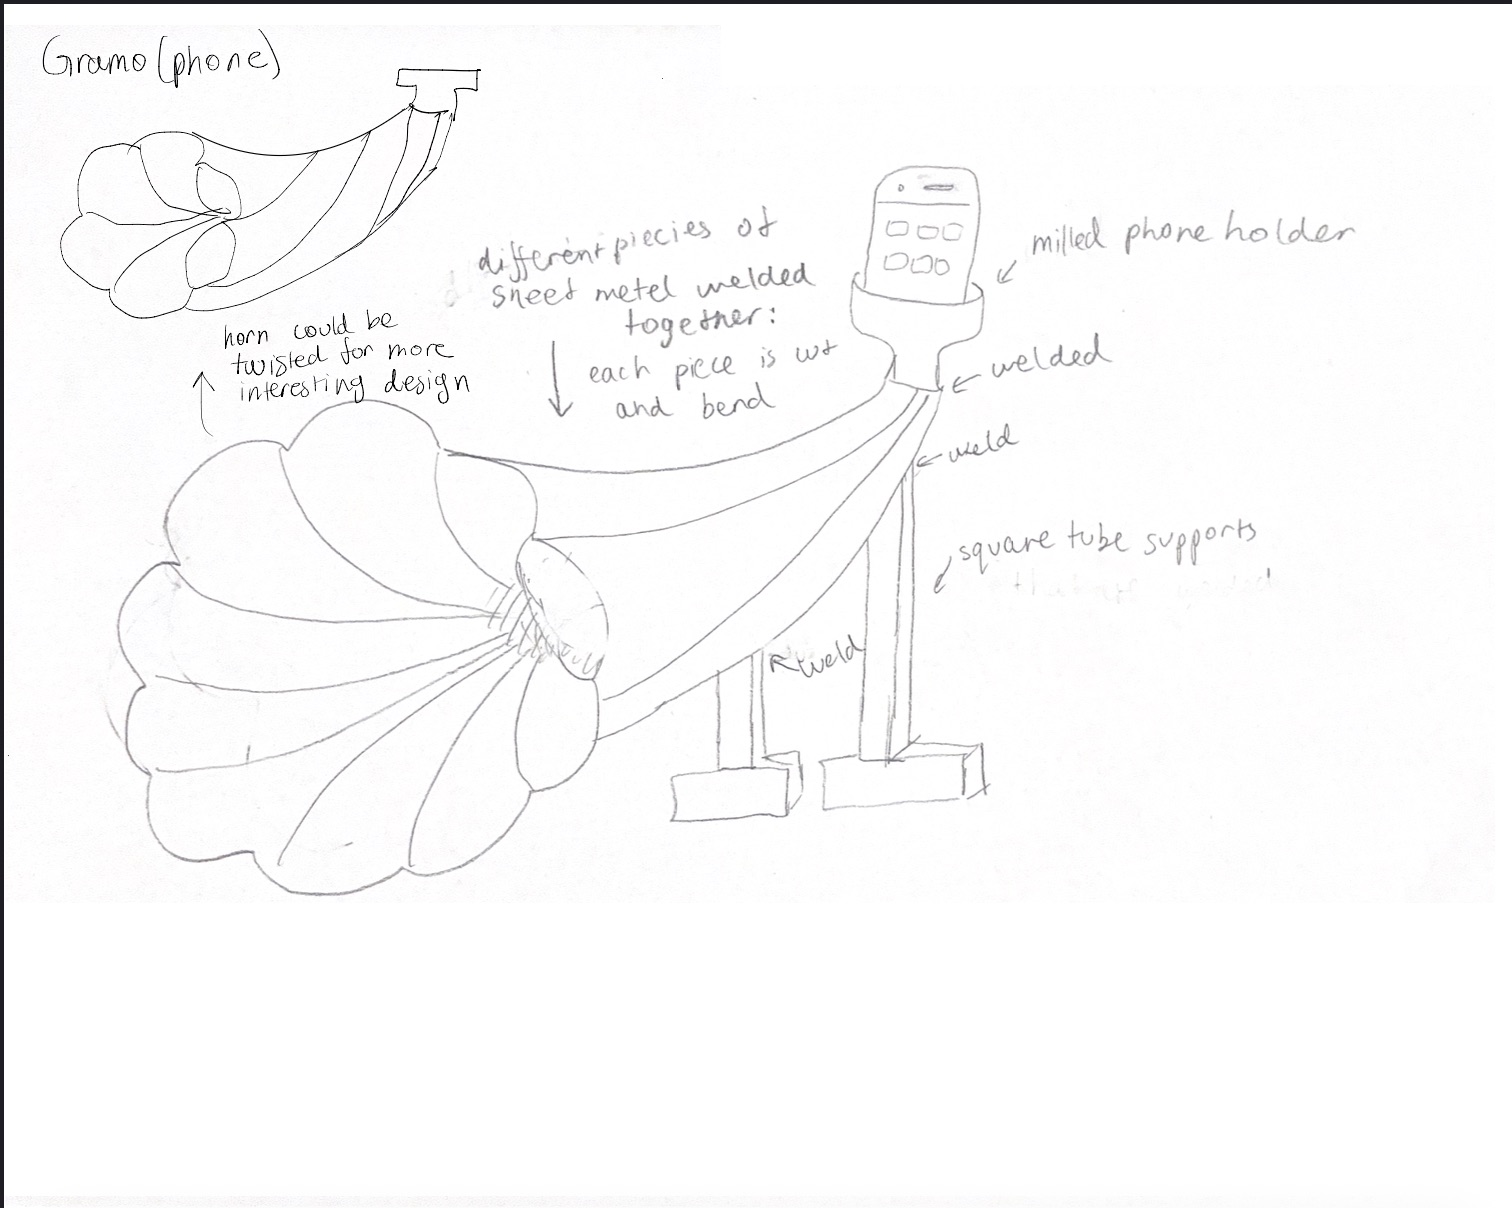 Gramo(phone)
different piecies of
sheet metel welded
together:
each piece is wt
and bend
horn could be
twisted for more
interesting design
milled phone holder
welded
weld
square tube supports
weld